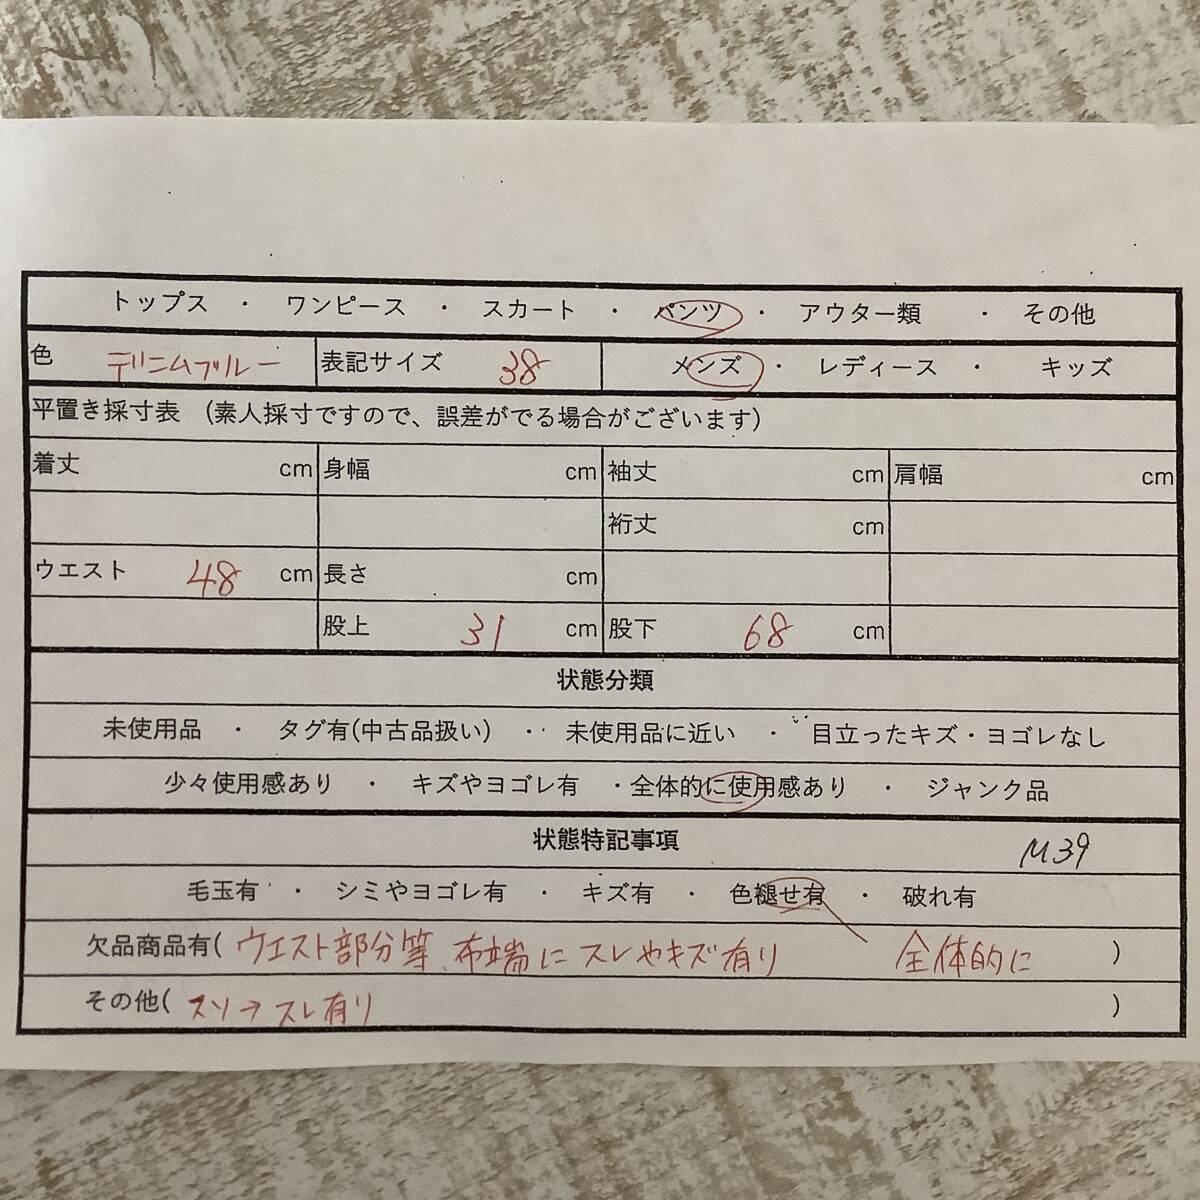 トップス ・ ワンピース ・ スカート ・ パンツ ・ アウター類 ・ その他
色 デニムブルー 表記サイズ 38 メンズ ・ レディース ・ キッズ
平置き採寸表 (素人採寸ですので、誤差がでる場合がございます)
着丈 cm 身幅 cm 袖丈 cm 肩幅 cm
裄丈 cm
ウエスト 48 cm 長さ cm
股上 31 cm 股下 68 cm
状態分類
未使用品 ・ タグ有(中古品扱い) ・ 未使用品に近い ・ 目立ったキズ・ヨゴレなし
少々使用感あり ・ キズやヨゴレ有 ・全体的に使用感あり ・ ジャンク品
状態特記事項 M39
毛玉有 ・ シミやヨゴレ有 ・ キズ有 ・ 色褪せ有 ・ 破れ有
欠品商品有( ウエスト部分等、布端にスレやキズ有り 全体的に )
その他( スソ→スレ有り )